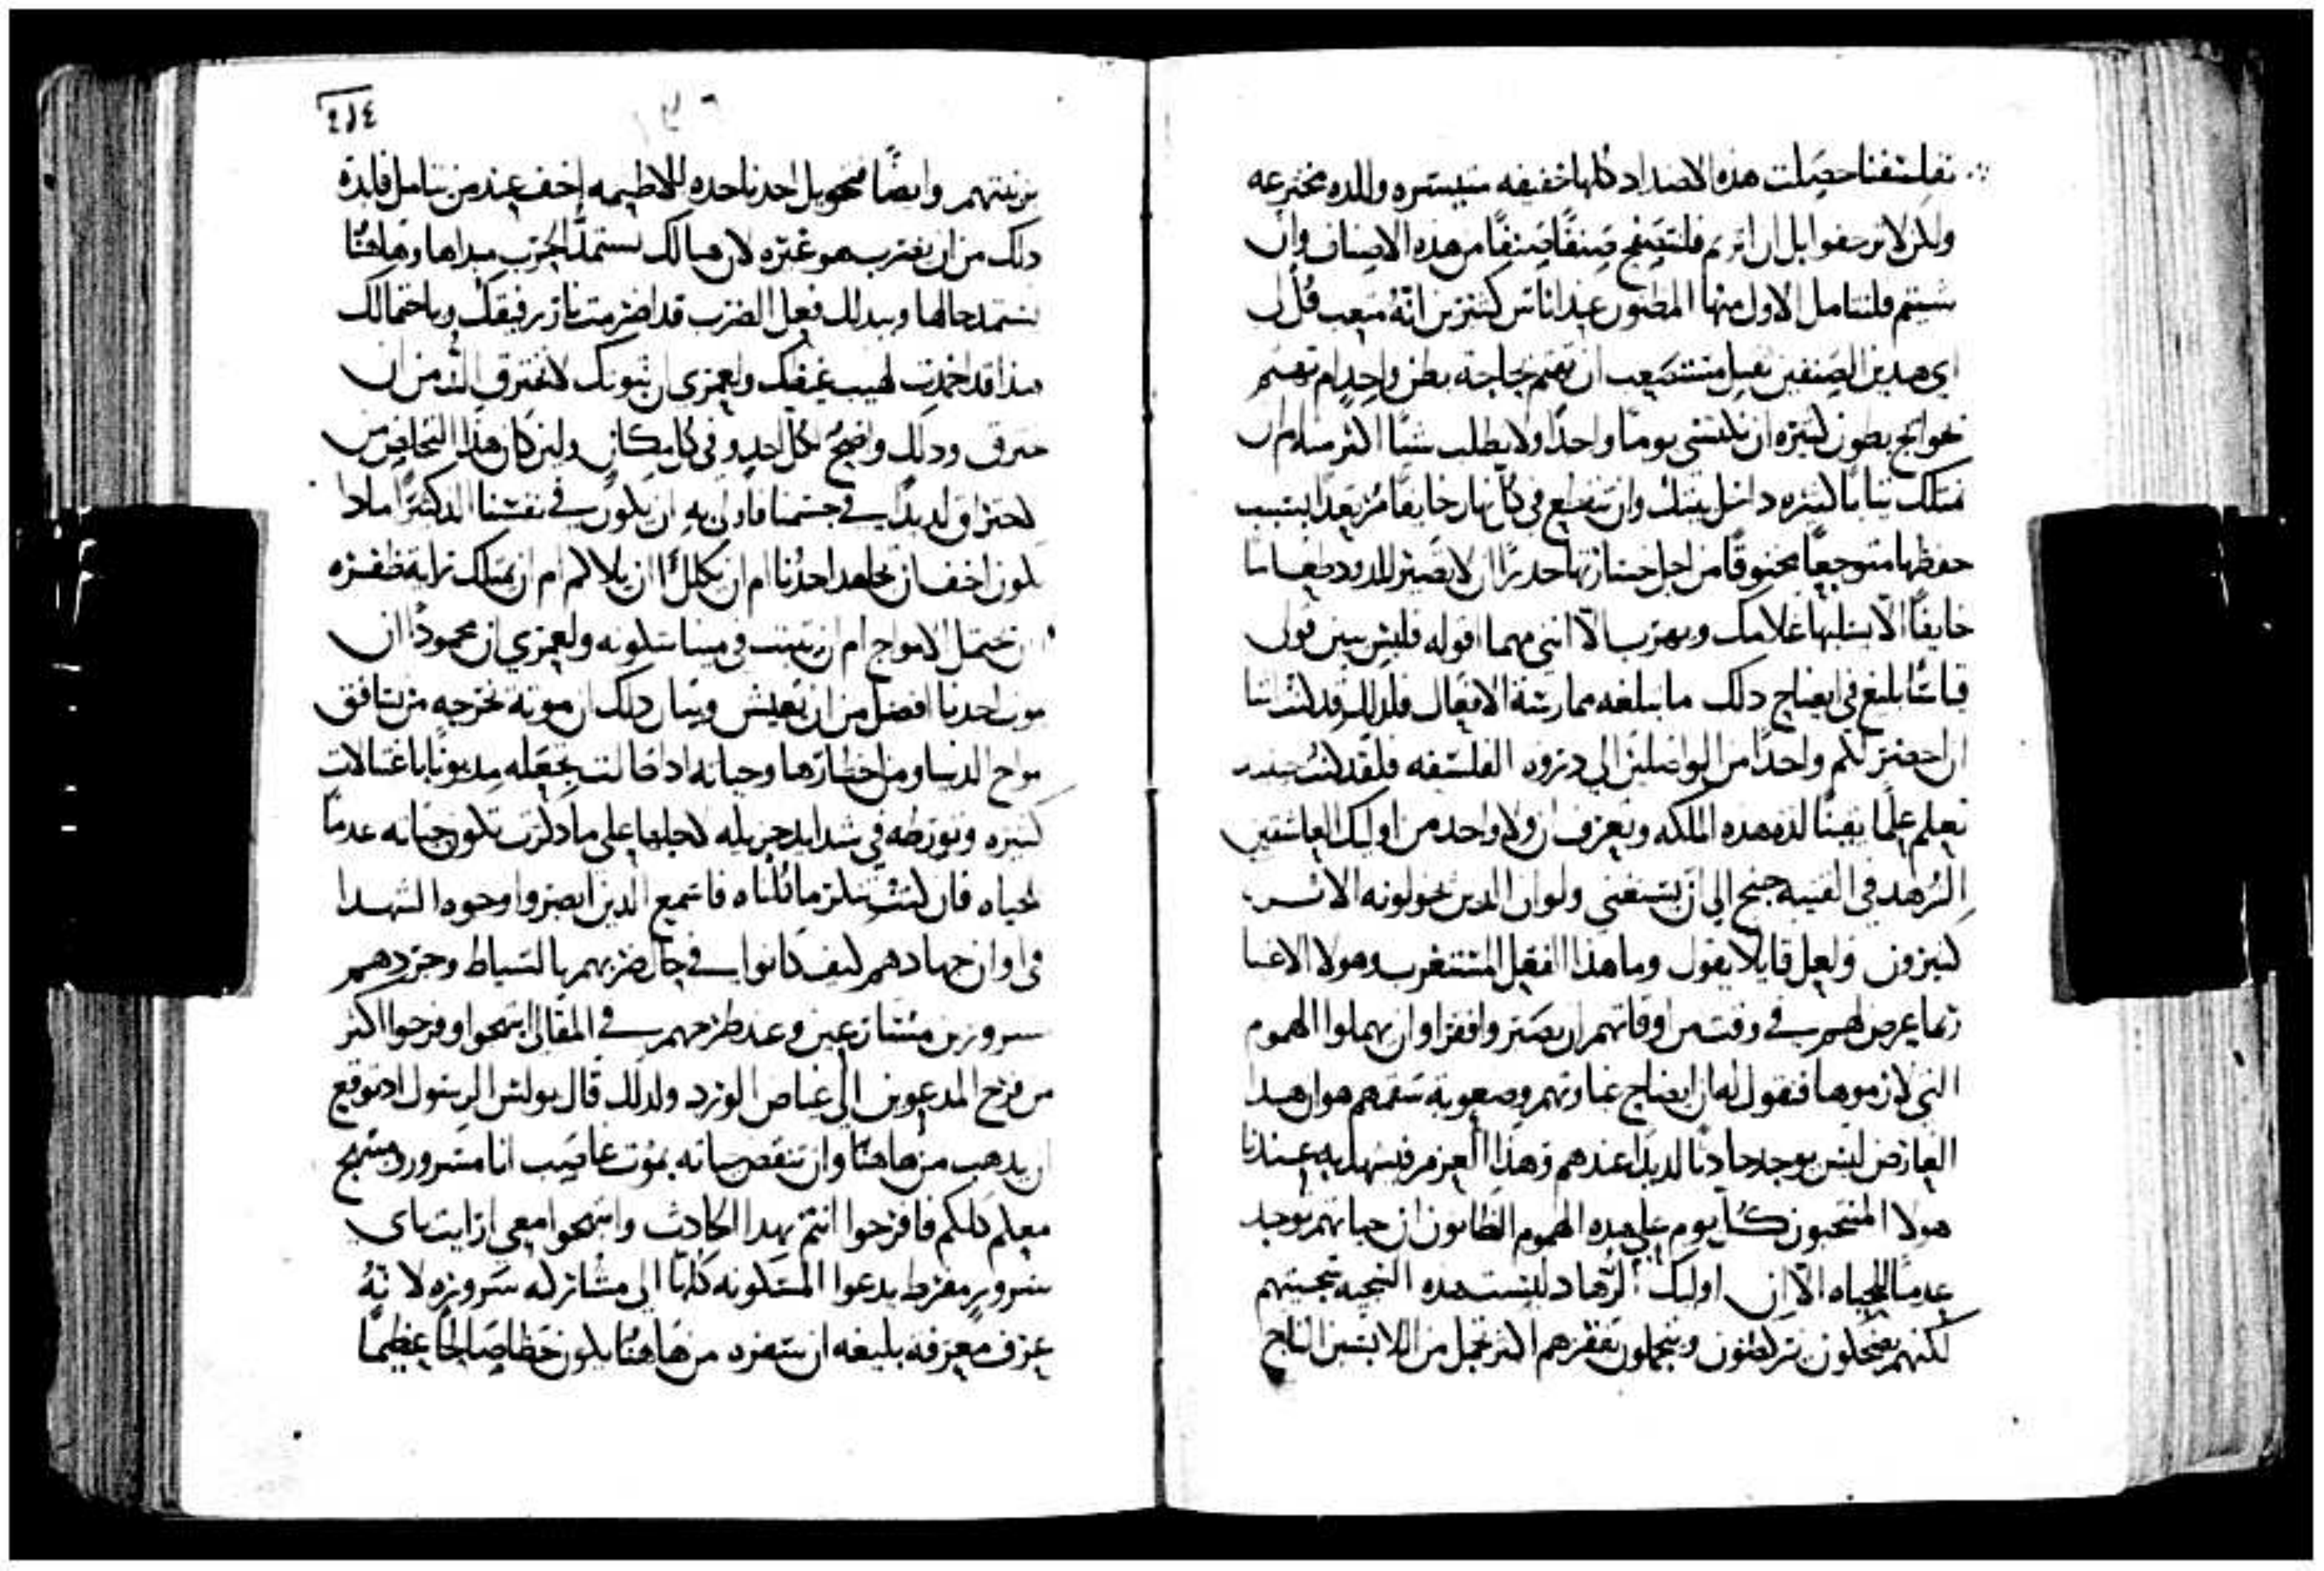 تفلسفنا حصلت هذه الاضداد كلها خفيفه متيسره والده مخترعه
ولكن لا ترجفوا بل ان اثرتم فلنتصفح صنفًا صنفًا من هذه الاصناف وان
شيتم فلنتامل الاول منها المظنون عند اناس كثيرين انه متعب قل لي
اي هدين الصنفين تقبل مستصعب ان تهتم بحاجة بطن واحد ام تهتم
بحوايج بطون كثيره ان تكتسي يوما واحدًا ولا يطلب شيًا اكثر منه ام ان
تمتلك ثيابًا كثيره داخل بيتك وان تتفطع في كل نهار خايفًا مرتعدًا بسبب
حفظها متوجعًا مخنوقًا من اجل خسارتها حدرًا ان لا يصير للدود طعاما
خايفًا الا يسلبها غلامك ويهرب الا انني مهما اقوله فليس يبين قولي
قياسًا بليغ في ايضاح دلك ما تبلغه ممارسة الافعال فلدلك قد كنت اشا
ان احضر لكم واحدًا من الواصلين الي دروه الفلسفه فلقد كنت حينيد
تعلم علمًا يقينًا لده هده الملكه وتعرف ان ولا واحد من اوليك العاشقين
الزهد في القنيه جنح الي ان يستغني ولو ان الدين يخولونه الاثر
كثيرون ولعل قايلا يقول وما هذا الفعل المستغرب وهولا الاغنيا
ربما عرض لهم في وقت من اوقاتهم ان يصيروا فقرا وان يهملوا الهموم
التي لازموها فنقول له ان ايضاح غباوتهم وصعوبة سقمهم هو ان هدا
العارض ليس يوجد حادثا لديدًا عندهم وهذا العزم فيشهد به عندنا
هولا المنتحبون كل يوم علي هده الهموم الظانون ان حياتهم توجد
عدمًا للحياه الا ان اوليك الزهاد ليست هده السجيه سجيتهم
لكنهم يضحكون يتراقصون ويتجملون بفقرهم اكثر تجمل من اللابسين التاج
٤١٤
بزينتهم وايضًا تحويل احدنا خده للاطمه اخف عند من يتامل فايدة
دلك من ان يضرب هو غيره لان هنالك تستمد الحرب مبداها وهاهنا
تستمد حالها وبدلك فعل الضرب قد اضرمت نار رفيقك وباحتمالك
هذا قد اخمدت لهيب غيظك ولعمري ان تبوتك لا تحترق الد من ان
تحترق ودلك واضح لكل احد وفي كل مكان ولين كان هذا التخلص من
الاحتراق لديدًا في جسمنا فاولي به ان يكون في نفسنا الد كثيرًا مادا
يكون اخف ان يجاهد احدنا ام ان يكلل ان يلاكم ام ان يمتلك ترابة ظفره
ان يحتمل الامواج ام ان يثبت في مينا سكونه ولعمري ان محمودًا ان
موت احدنا افضل من ان يعيش وبيان دلك ان موته تخرجه من تنافق
امواج الدنيا ومن اخطارها وحياته اد كانت تجعله مديونًا باغتيالات
كثيره وتورطه في شدايد جزيله لاجلها علي ما دكرت تكون حياته عدمًا
للحياه فان كنت تنكر ما قلناه فاسمع الدين ابصروا وجوه الشهدا
في اوان جهادهم كيف كانوا في حال ضربهم بالسياط وجردهم
مسرورين متسارعين وعند طرحهم في المقالي ابتهجوا وفرحوا اكثر
من فرح المدعوين الي غياص الورد ولدلك قال بولس الرسول اد توقع
ان يدهب من هاهنا وان تنقضي حياته بموت غاصب انا مسرور ومبتهج
معكم كلكم فافرحوا انتم بهدا الحادث وابتهجوا معي ارايت باي
سرور مفرط يدعوا المسكونه كلها الي مشاركه سروره لانه
عرف معرفه بليغه ان سفره من هاهنا يكون حظًا صالحًا عظيمًا